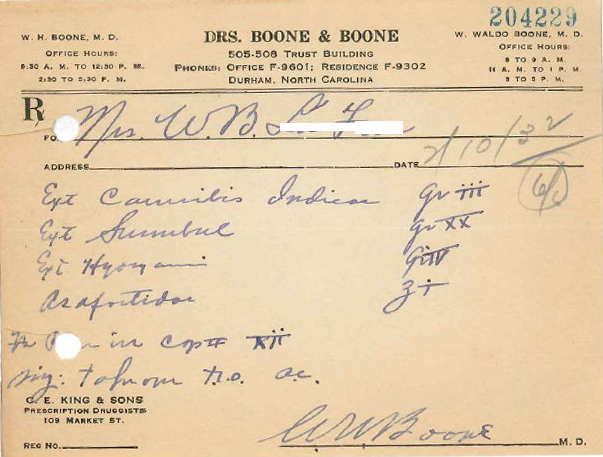 204229
W. H. BOONE, M. D.
OFFICE HOURS:
8:30 A. M. TO 12:30 P. M.
2:30 TO 5:30 P. M.
DRS. BOONE & BOONE
505-508 TRUST BUILDING
PHONES: OFFICE F-9601; RESIDENCE F-9302
DURHAM, NORTH CAROLINA
W. WALDO BOONE, M. D.
OFFICE HOURS:
8 TO 9 A. M.
11 A. M. TO 1 P. M.
3 TO 5 P. M.
℞
FO Mrs. W. B.
ADDRESS DATE 2/10/32
Ext Cannibis Indica gr iii
Ext Sumbul gr XX
Ext Hyoscyami
Asafoetidae ʒ i
in Caps XII
Sig: T.D. ac.
C. E. KING & SONS
PRESCRIPTION DRUGGISTS
109 MARKET ST.
REG NO.
W Boone M. D.